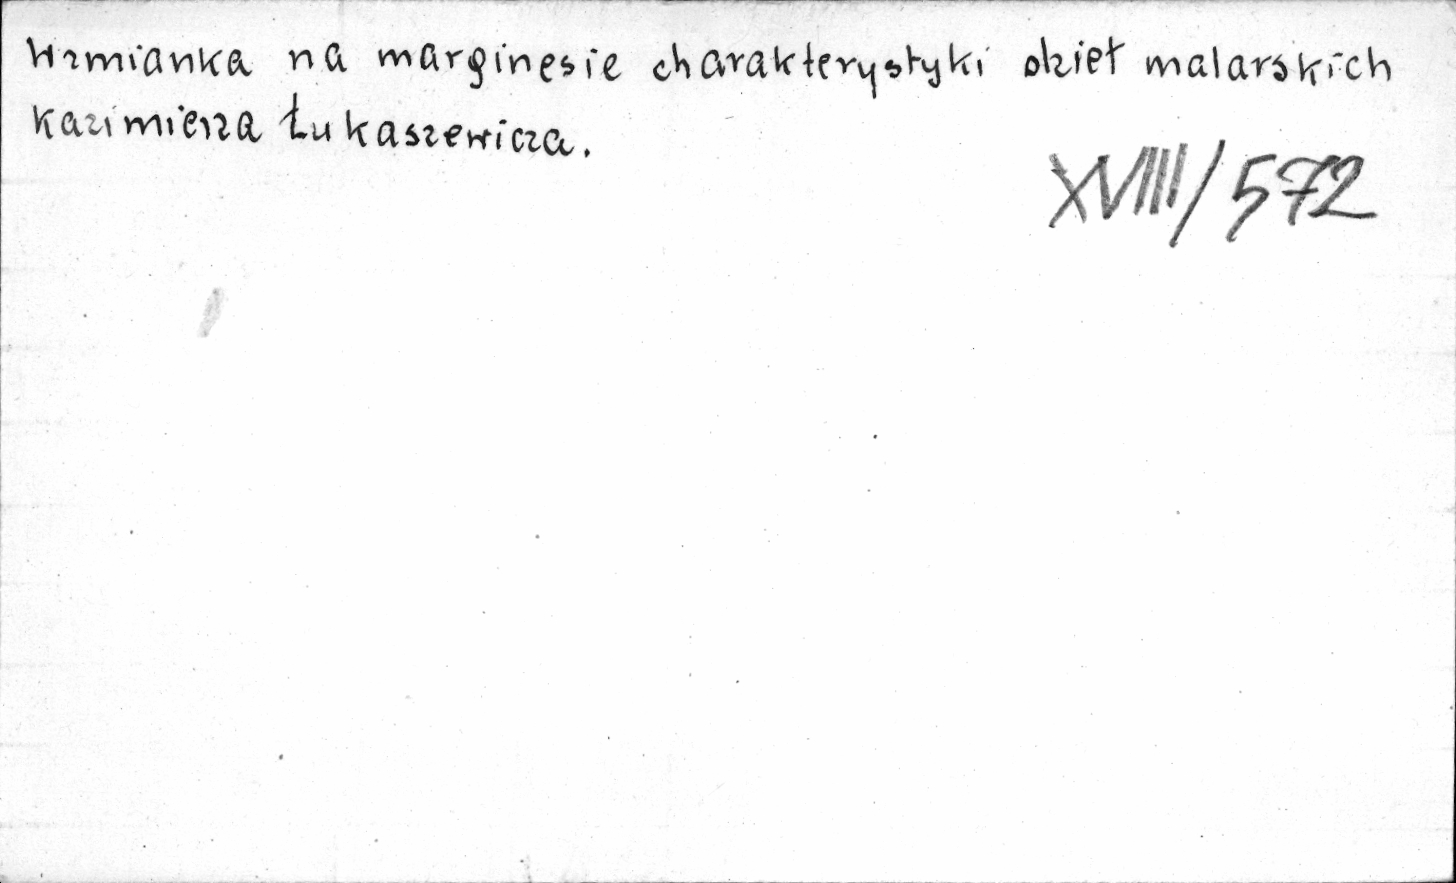 Wzmianka na marginesie charakterystyki dzieł malarskich
Kazimierza Łukaszewicza.
XVIIII/572